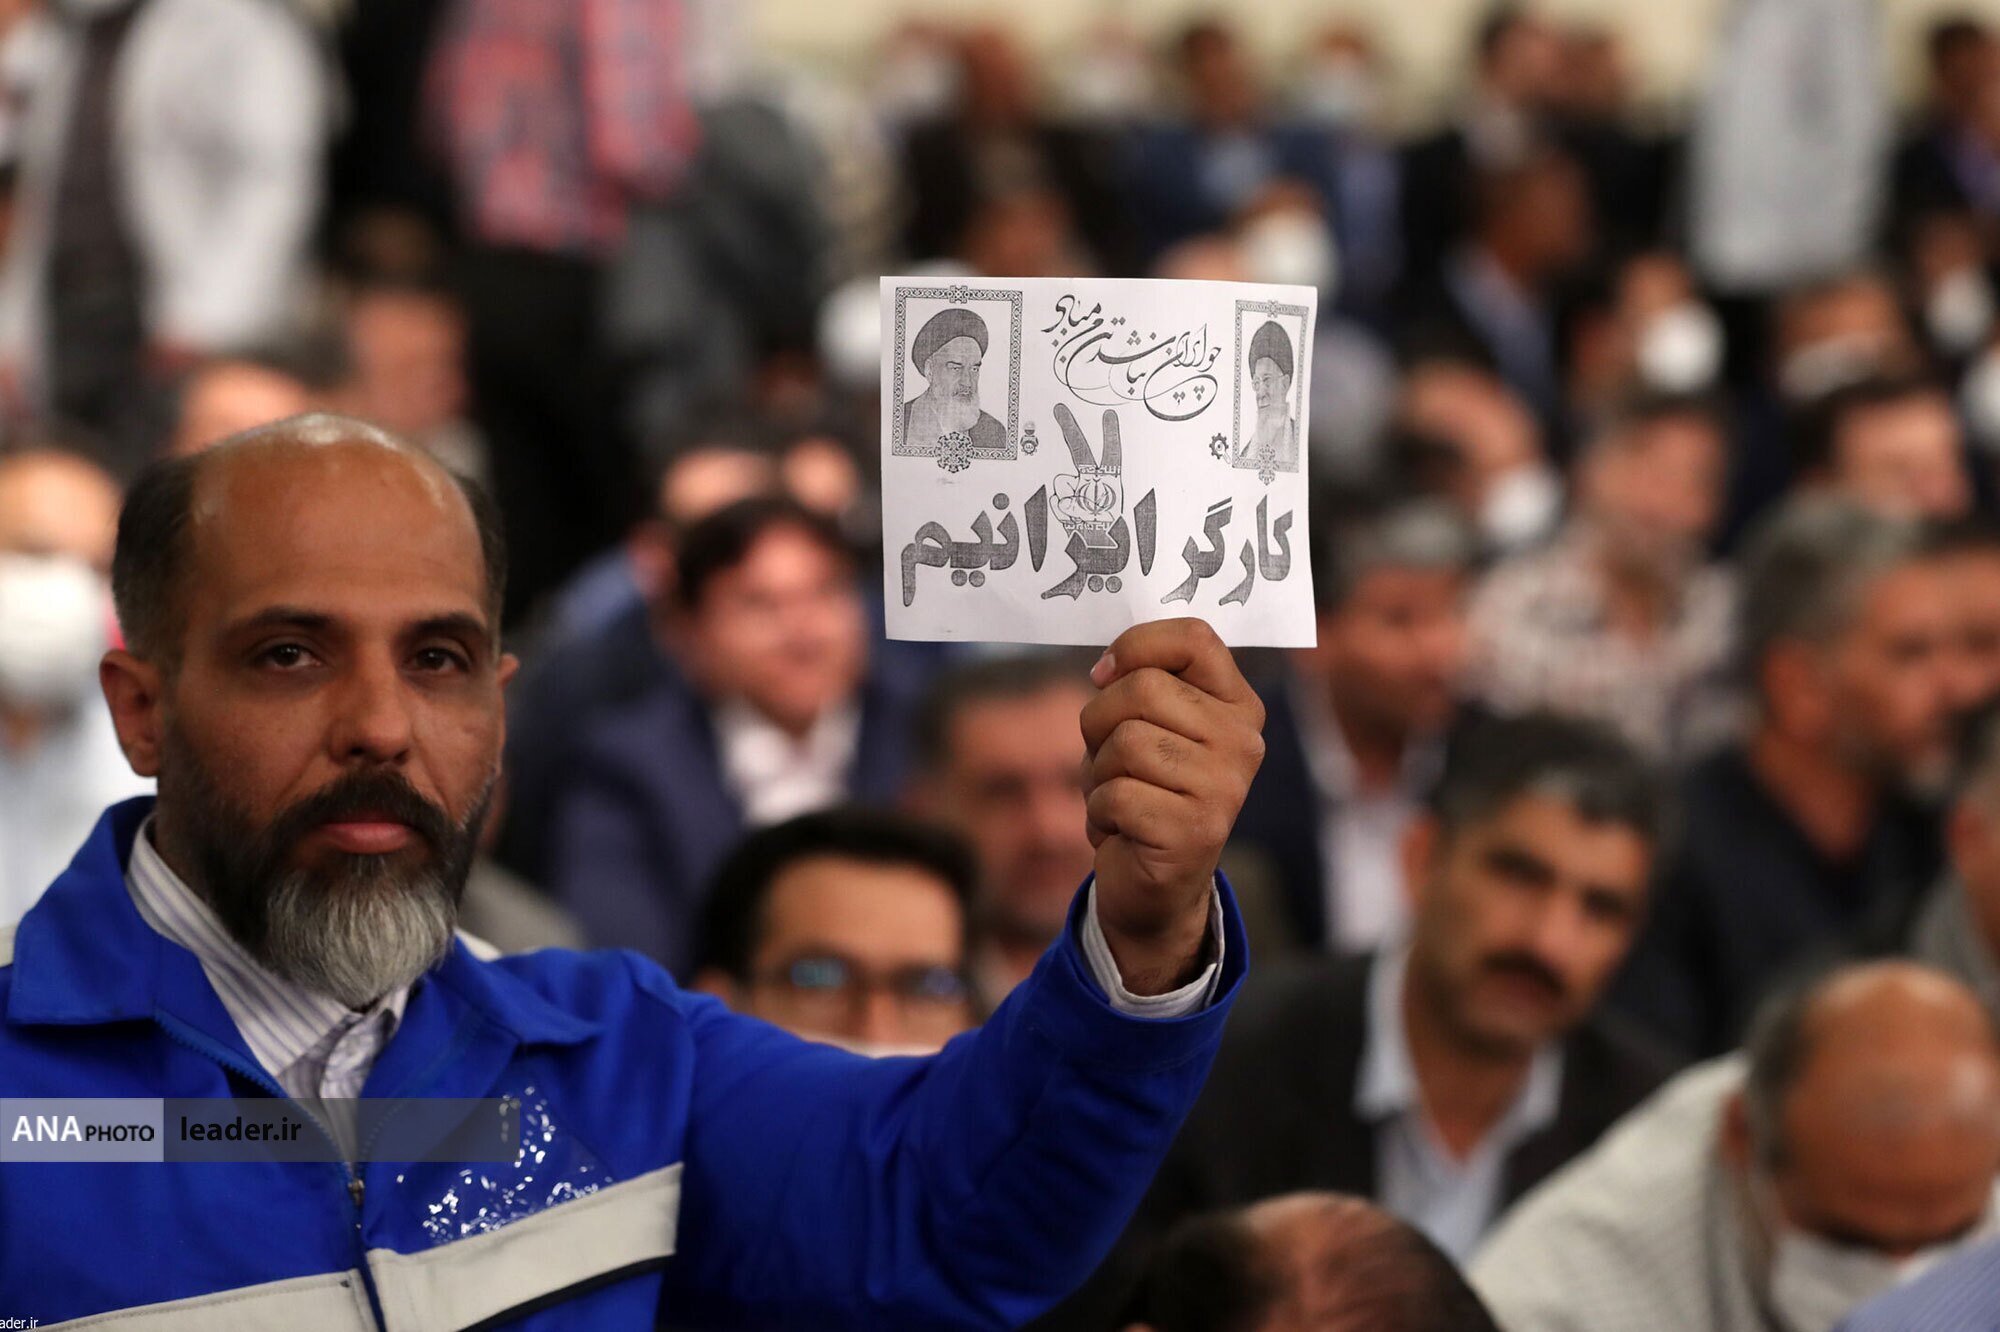 چو ایران نباشد تن من مباد
کارگر ایرانیم
ANA PHOTO leader.ir
ader.ir